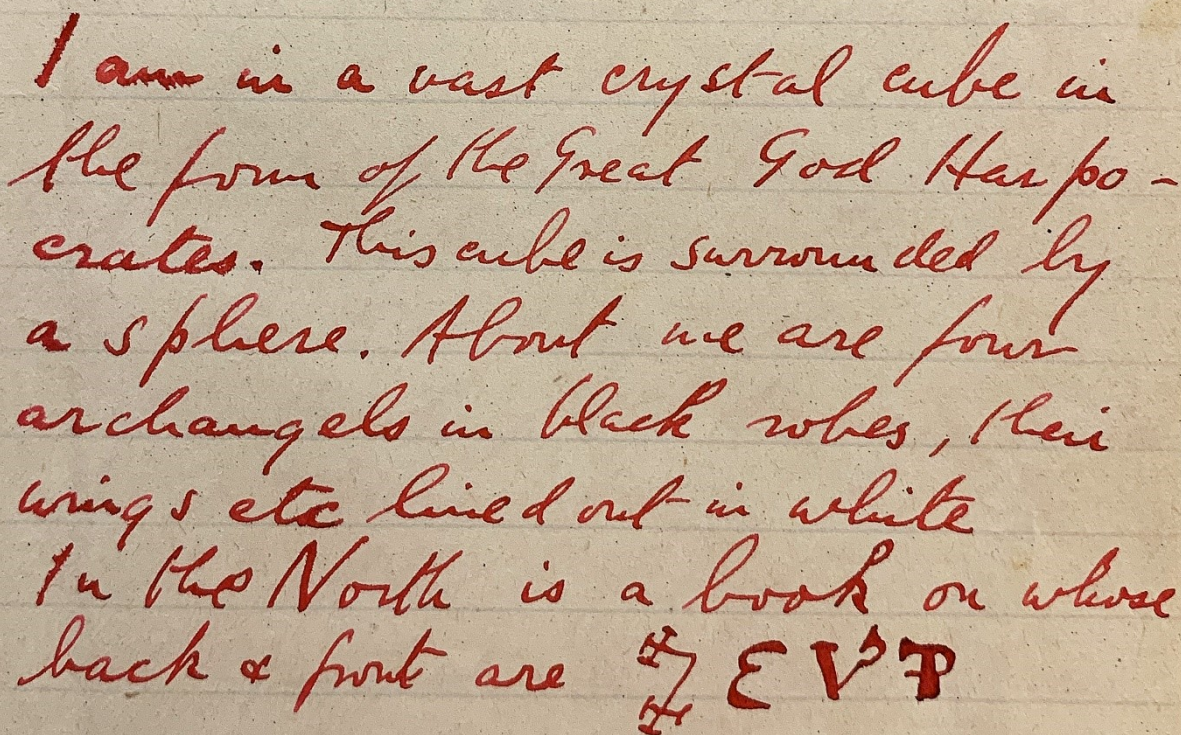 I am in a vast crystal cube in
the form of the Great God Harpo-
crates. This cube is surrounded by
a sphere. About me are four
archangels in black robes, their
wings etc lined out in white
In the North is a book on whose
back & front are